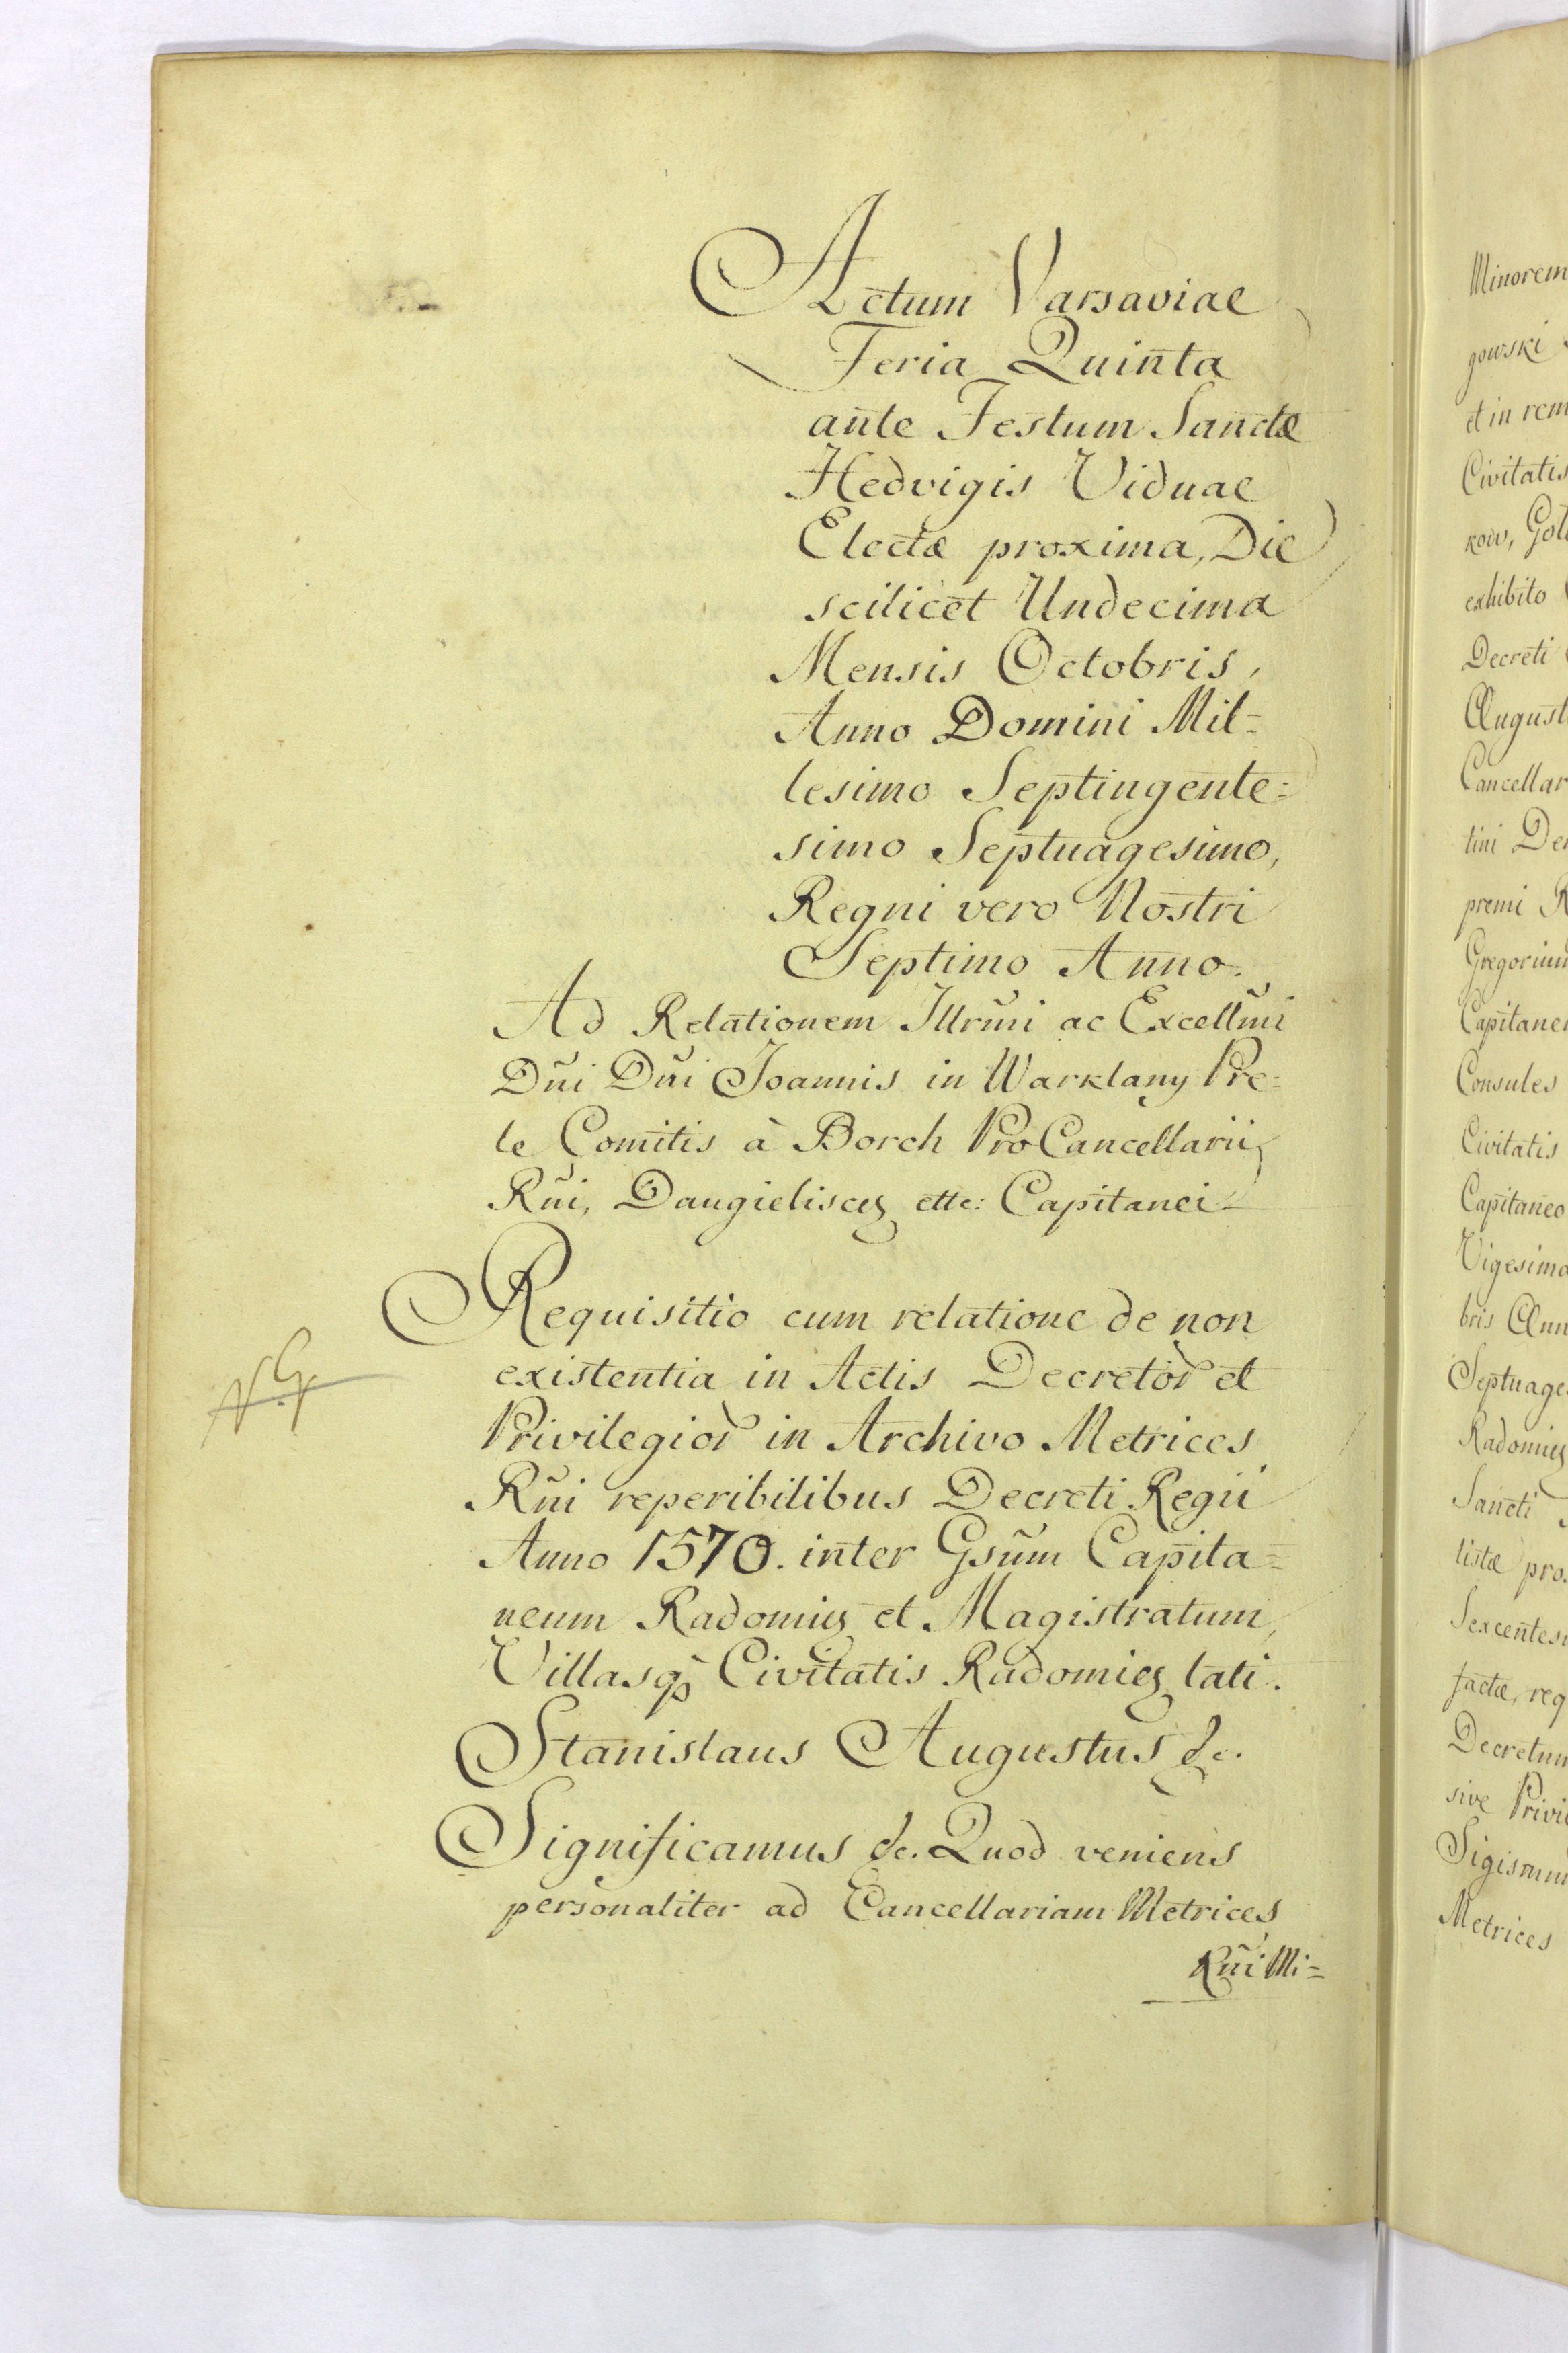 Actum Varsaviae
Feria Quinta
ante Festum Sanctæ
Hedvigis Viduae
Electæ proxima, Die
scilicet Undecima
Mensis Octobris,
Anno Domini Mil=
lesimo Septingente=
simo Septuagesimo,
Regni vero Nostri
Septimo Anno.
Ad Relationem Illrmi ac Excellmi
Dni Dni Joannis in Warklany Pre=
le Comitis à Borch ProCancellarii
Rni, Daugielisceȝ ettc: Capitanei
Requisitio cum relatione de non
existentia in Actis Decretor et
Privilegior in Archivo Metrices
Rni reperibilibus Decreti Regii
Anno 1570. inter Gsum Capita=
neum Radomieȝ et Magistratum,
Villasqȝ Civitatis Radomieȝ lati.
Stanislaus Augustus &c.
Significamus &c. Quod veniens
personaliter ad Cancellariam Metrices
Rni Mi=
Minorem
gowski
et in rem
Civitatis
kow, Goł
exhibito
Decreti
August
Cancellar
tini De
premi R
Gregorium
Capitane
Consules
Civitatis
Capitaneo
Vigesima
bris Ann
Septuage
Radomieȝ
Sancti
listæ pro
Sexcentes
factæ, req
Decretum
sive Privi
Sigismun
Metrices